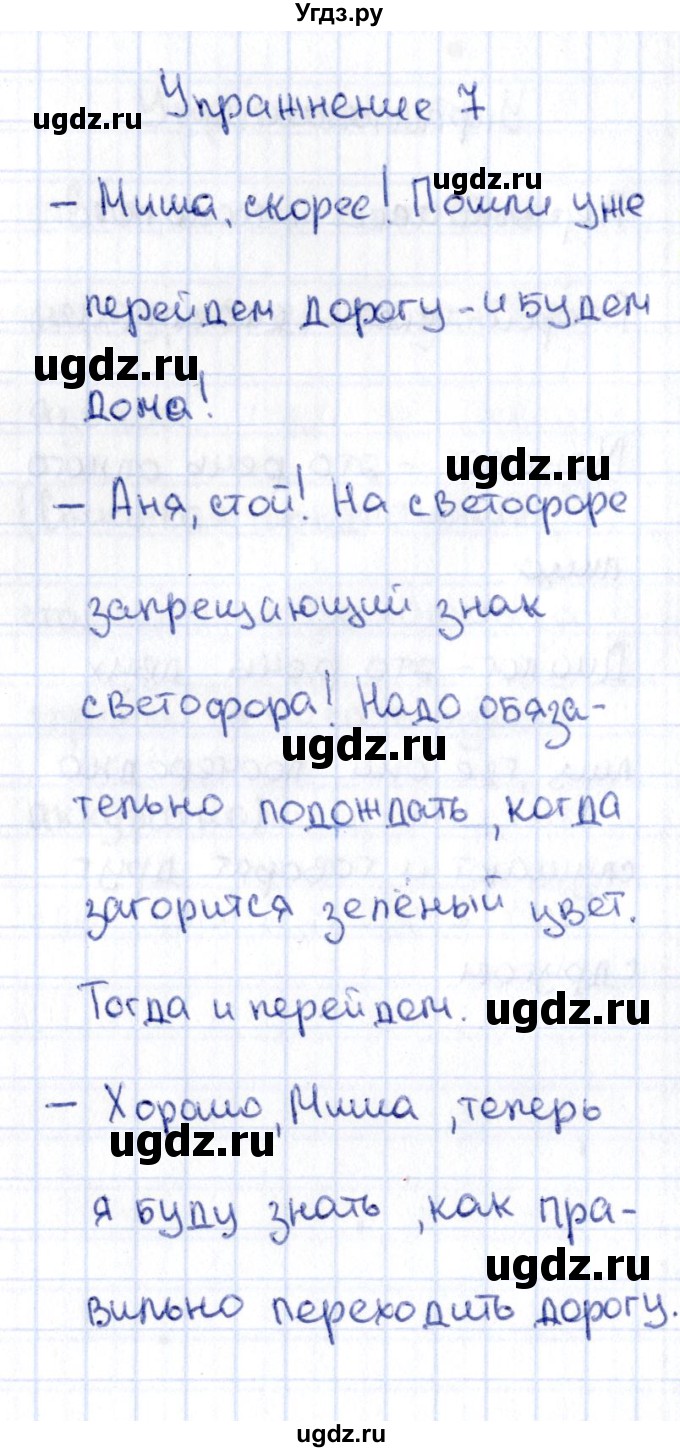 Угдз.ру
Упражнение 7
ugdz.ru
ugdz.ru
– Миша, скорее! Пошли уже
перейдем дорогу – и будем
ugdz.ru
дома!
ugdz.ru
– Аня, стой! На светофоре
запрещающий знак
светофора! Надо обяза-
ugdz.ru
тельно подождать, когда
загорится зелёный цвет.
Тогда и перейдем.
ugdz.ru
– Хорошо, Миша, теперь
ugdz.ru
я буду знать, как пра-
ugdz.ru
вильно переходить дорогу.
ugdz.ru